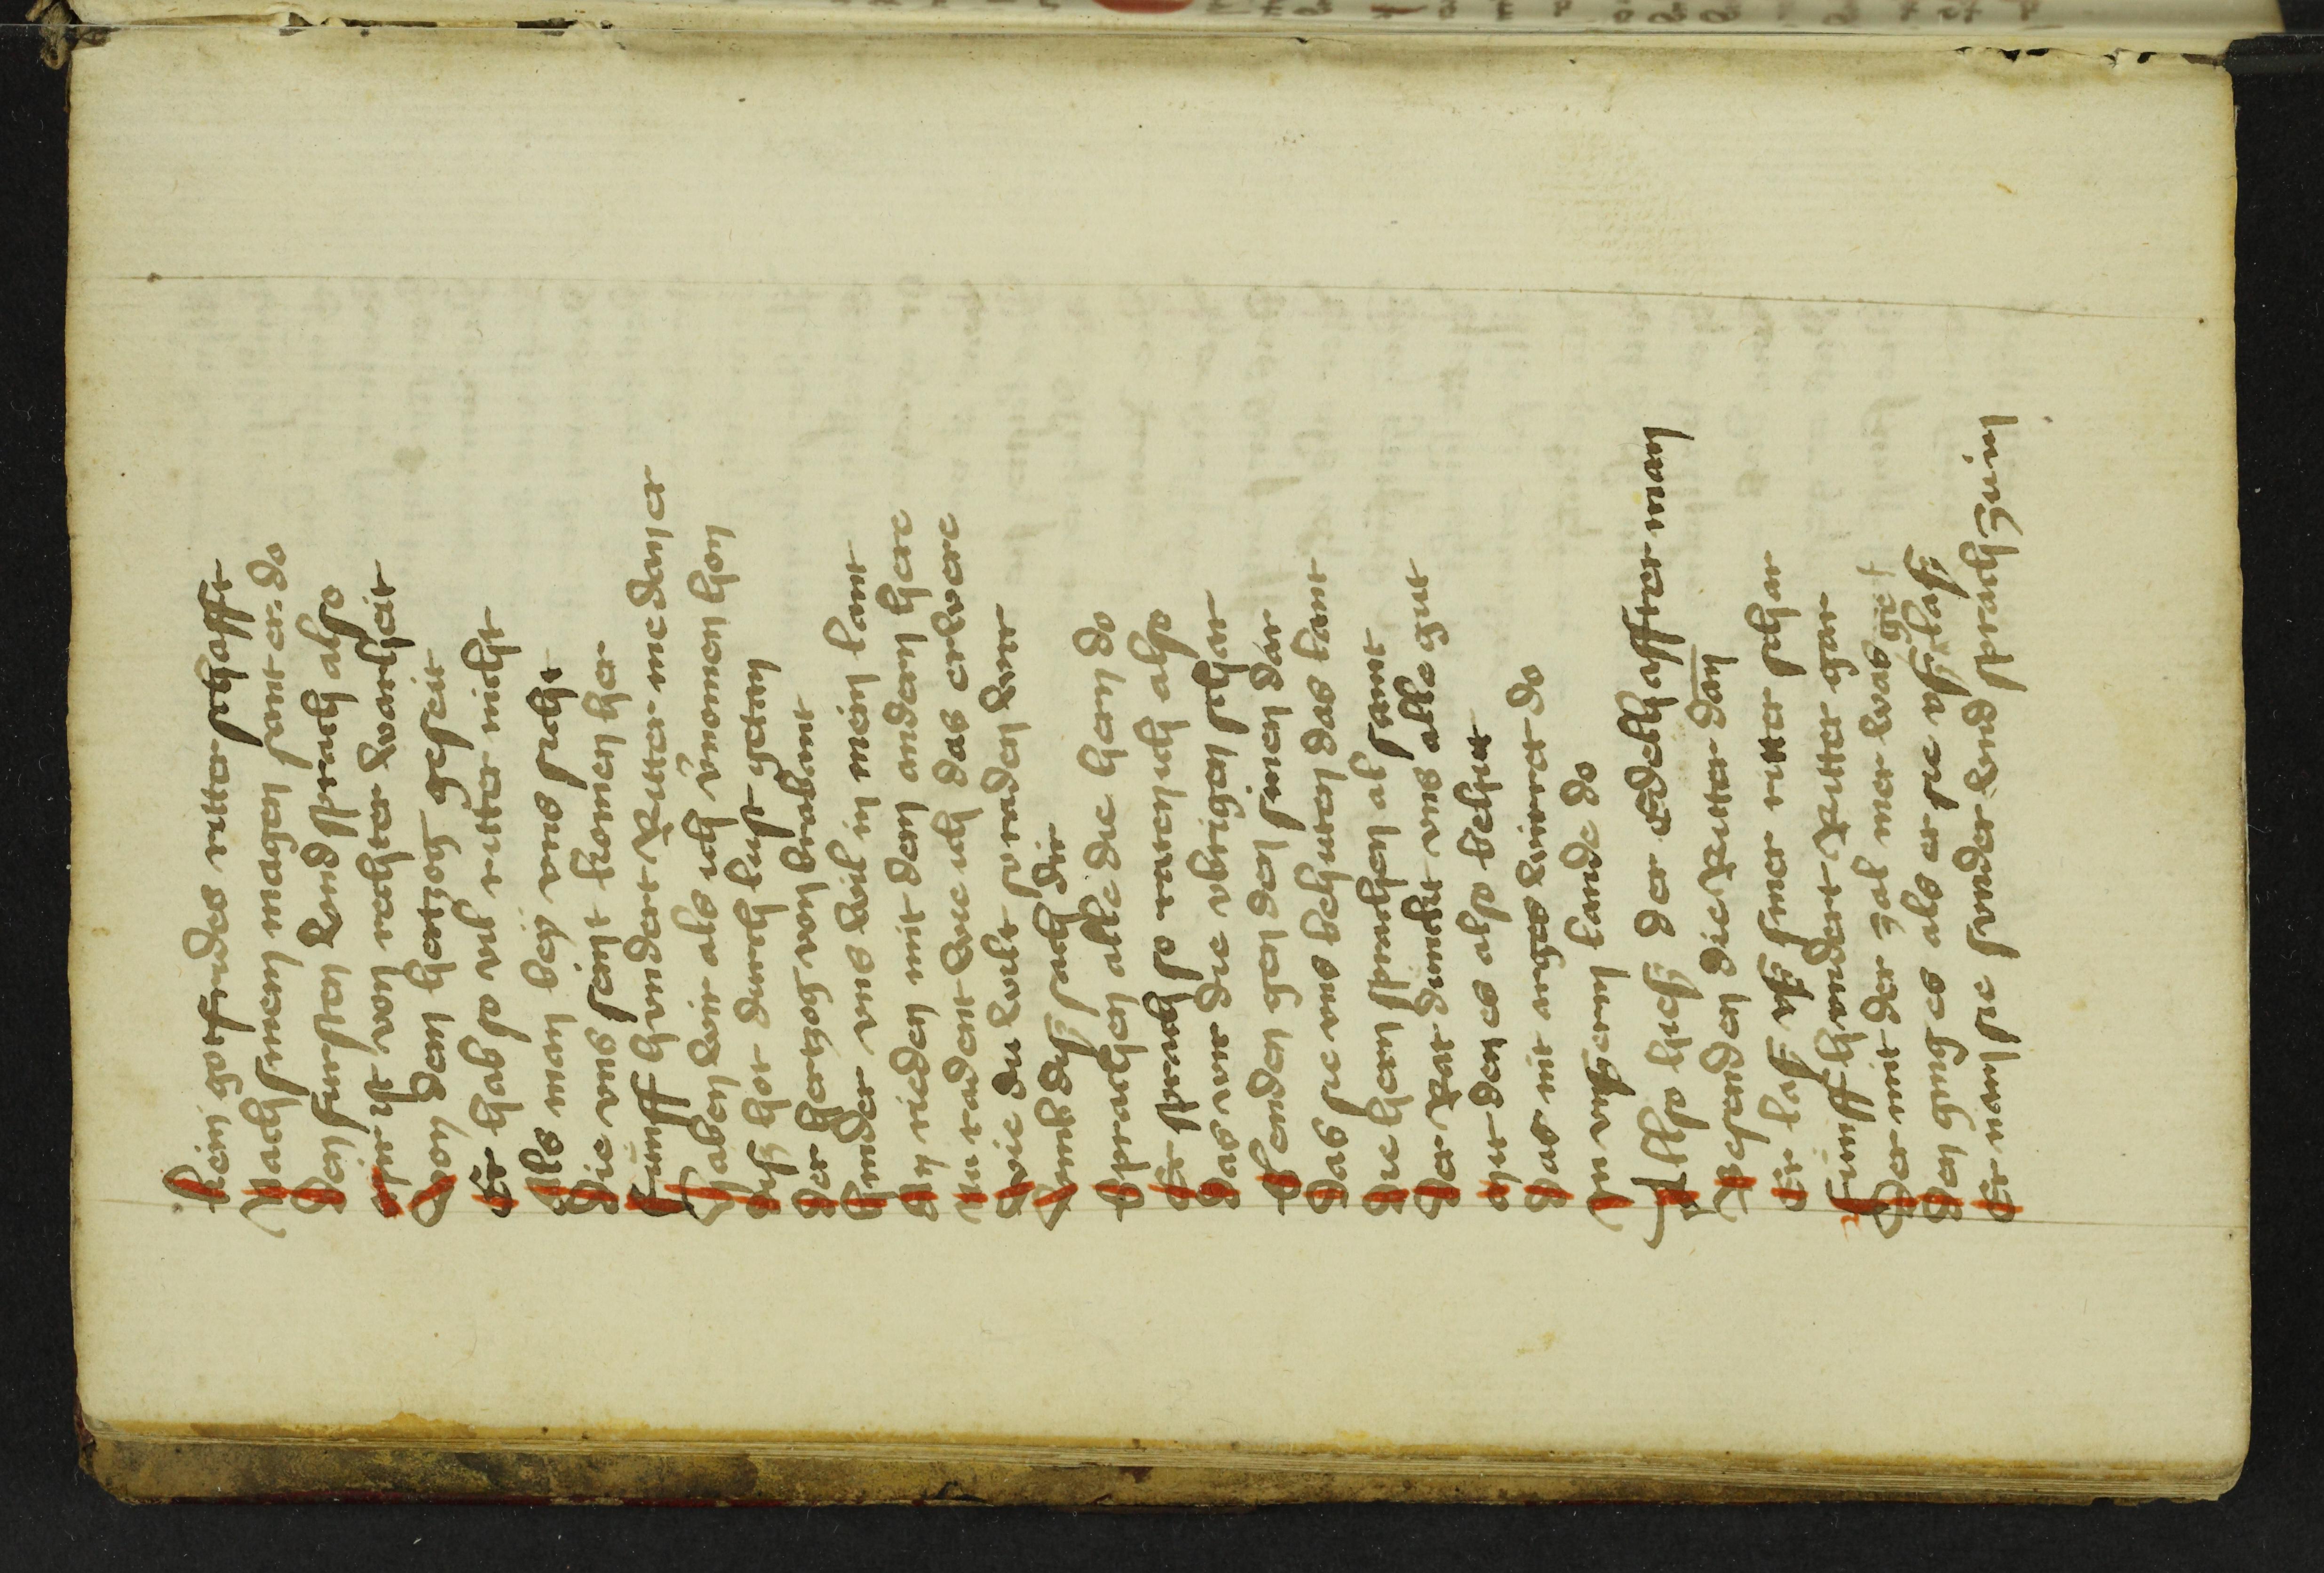 Kein gotfrides ritter schafft
Nach sinem magen sant er do
Den fursten vnd sprach also
Mir ist von rechter warheit
Von dem hertzog geseit
Er hab so vil ritter nicht
Als man bey vns sicht
Die vns seint komen her
Fúnff hundert Ritter me dan er
Haben wir als ich v'nomen hon
Vns hot durch lust getan
Der hertzog von brabant
Hinder vns wil in mein lant
In rieden mit dem andern here
Nu radent wie ich das erwere
Wie du wilt so raden wir
Vmb diß sach dir
Sprachen alle die hern do
Er sprach so raten ich also
Das wir die vbrigen schar
Senden gen den sinen dar
Das sie vns behuten das lant
Die hern sprachen al sant
Der Rat dunckt vns alle gut
Mit den es also behut
Das nit anges wirret do
In vnserm lande do
Also hieß der Edelhaffter man
Besenden die Ritter dan
Er laß vß siner ritter schar
Fúnff hundert Ritter gar
Der mit der zal mer was
Den ging es als er sie vß laß
Er nam sie sunder vnd sprach zuin